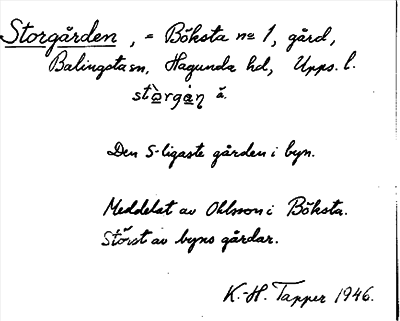 Storgården, = Böksta nº 1, gård,
Balingsta sn, Hagunda hd, Upps. l.
stòrgạ̊ṇ å.
Den S-ligaste gården i byn.
Meddelat av Ohlsson i Böksta.
Störst av byns gårdar.
K.-H. Tapper 1946.